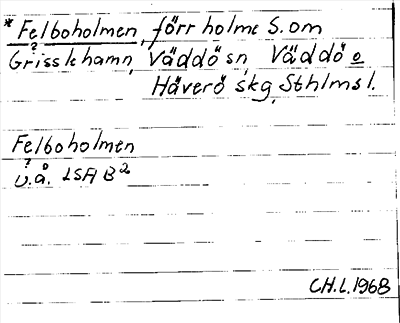 * Felboholmen, förr holme S. om
Grisslehamn, Väddö sn, Väddö o
Häverö skg, Sthlms l.
Felboholmen
u.å. LSA B²
CH.L.1968